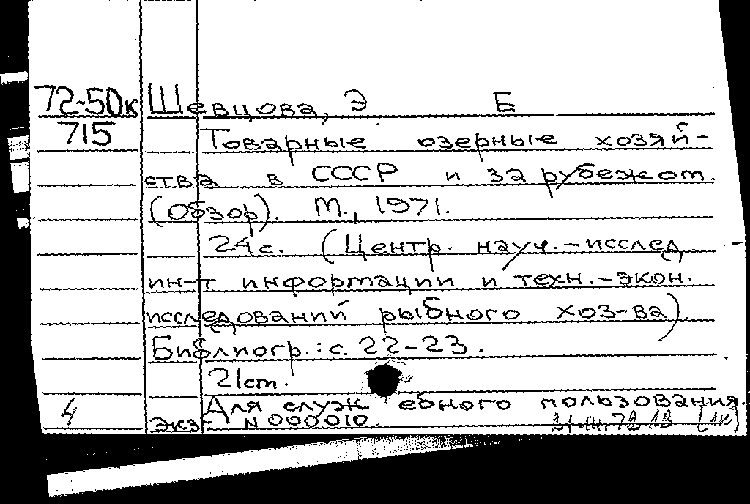 72-50к Шевцова, Э Б
715 Товарные озерные хозяй-
ства в СССР и за рубежом.
(Обзор). М., 1971.
24с. (Центр. науч.-исслед.
ин-т информации и техн.-экон.
исследований рыбного хоз-ва)
Библиогр.: с. 22-23.
21см.
4 Для служебного пользования.
Экз N 000010.